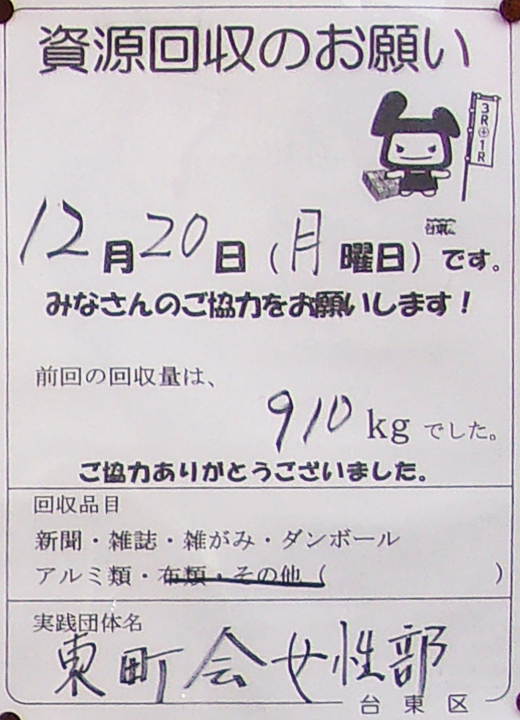 資源回収のお願い
3R+1R
12月20日(月曜日)です。
みなさんのご協力をお願いします!
前回の回収量は、
910 kg でした。
ご協力ありがとうございました。
回収品目
新聞・雑誌・雑がみ・ダンボール
アルミ類・布類・その他( )
実践団体名
東町会女性部
台東区